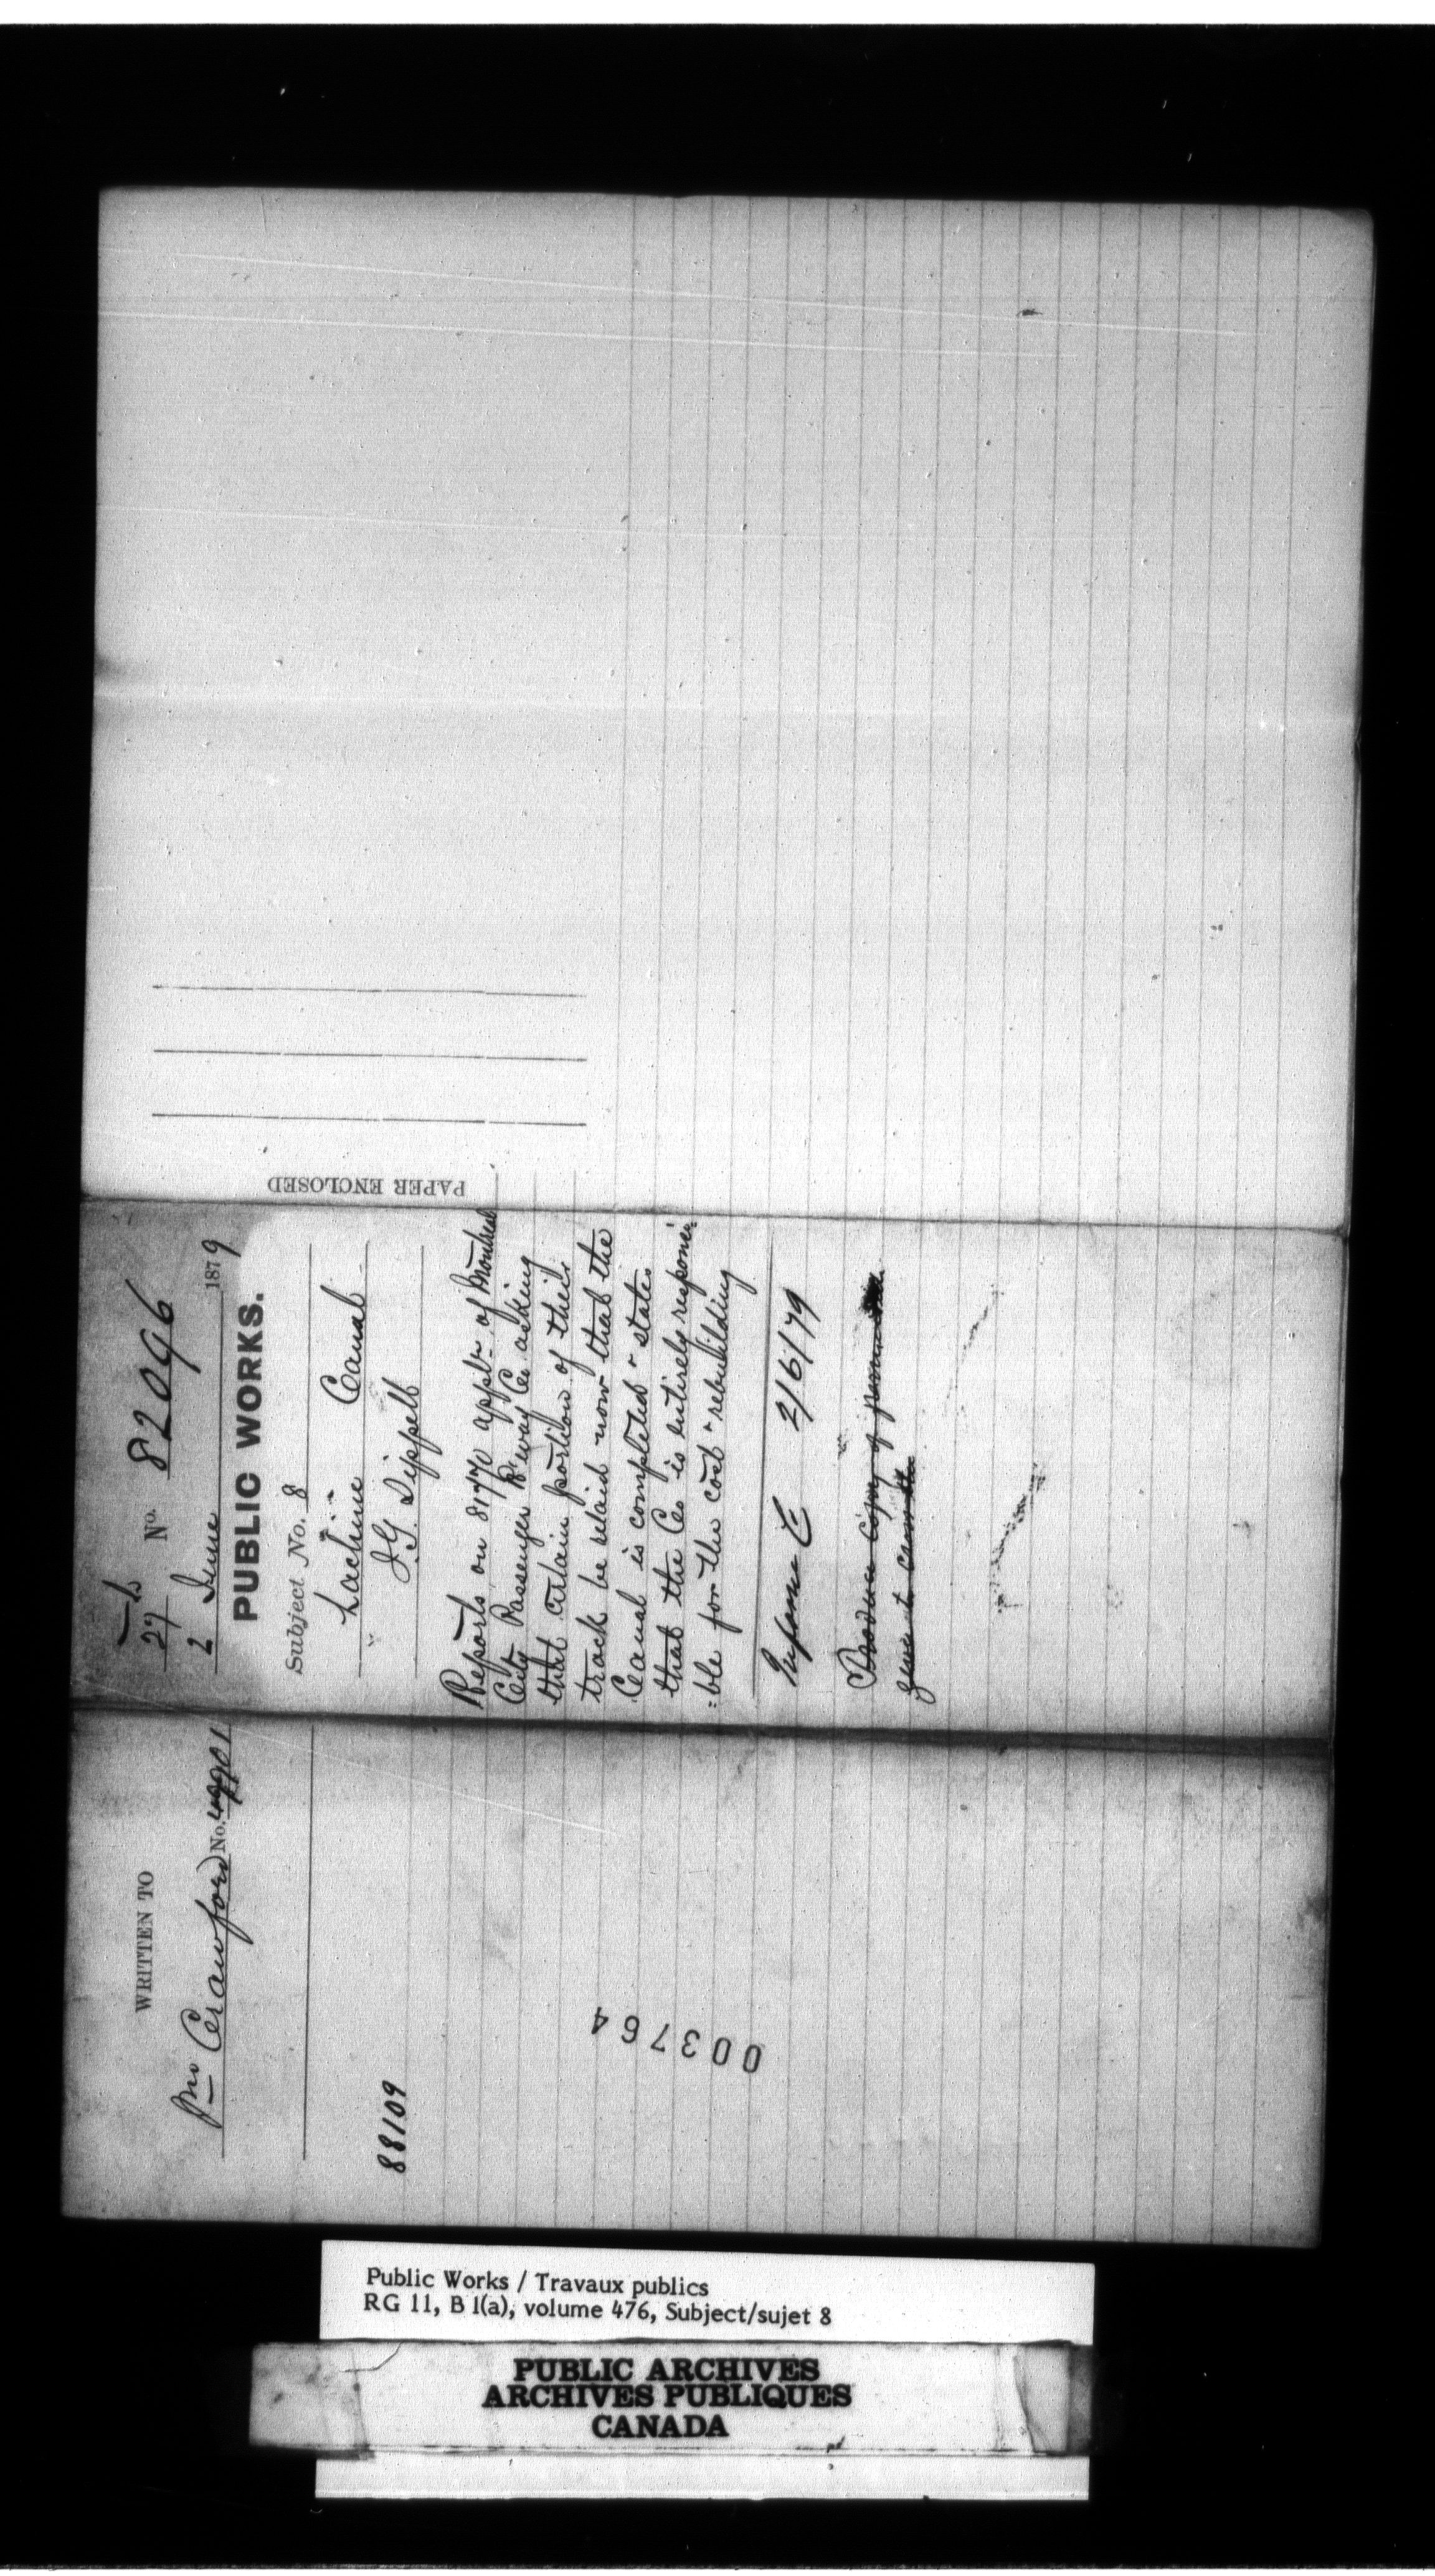 WRITTEN TO
Mr Crawford No.
88109
003764
27 No. 82096
2 June 1879
PUBLIC WORKS.
Subject No. 8
Lachine Canal
J.G. Sippell
Reports on 81770 appln of Montreal
City Passenger R'way Co. asking
that certain portion of their
track be relaid now that the
Canal is completed & states
that the Co. is entirely responsi=
=ble for the cost & rebuilding
Inform C 2/6/79
Produce copy of
PAPER ENCLOSED
Public Works / Travaux publics
RG 11, B 1(a), volume 476, Subject/sujet 8
PUBLIC ARCHIVES
ARCHIVES PUBLIQUES
CANADA